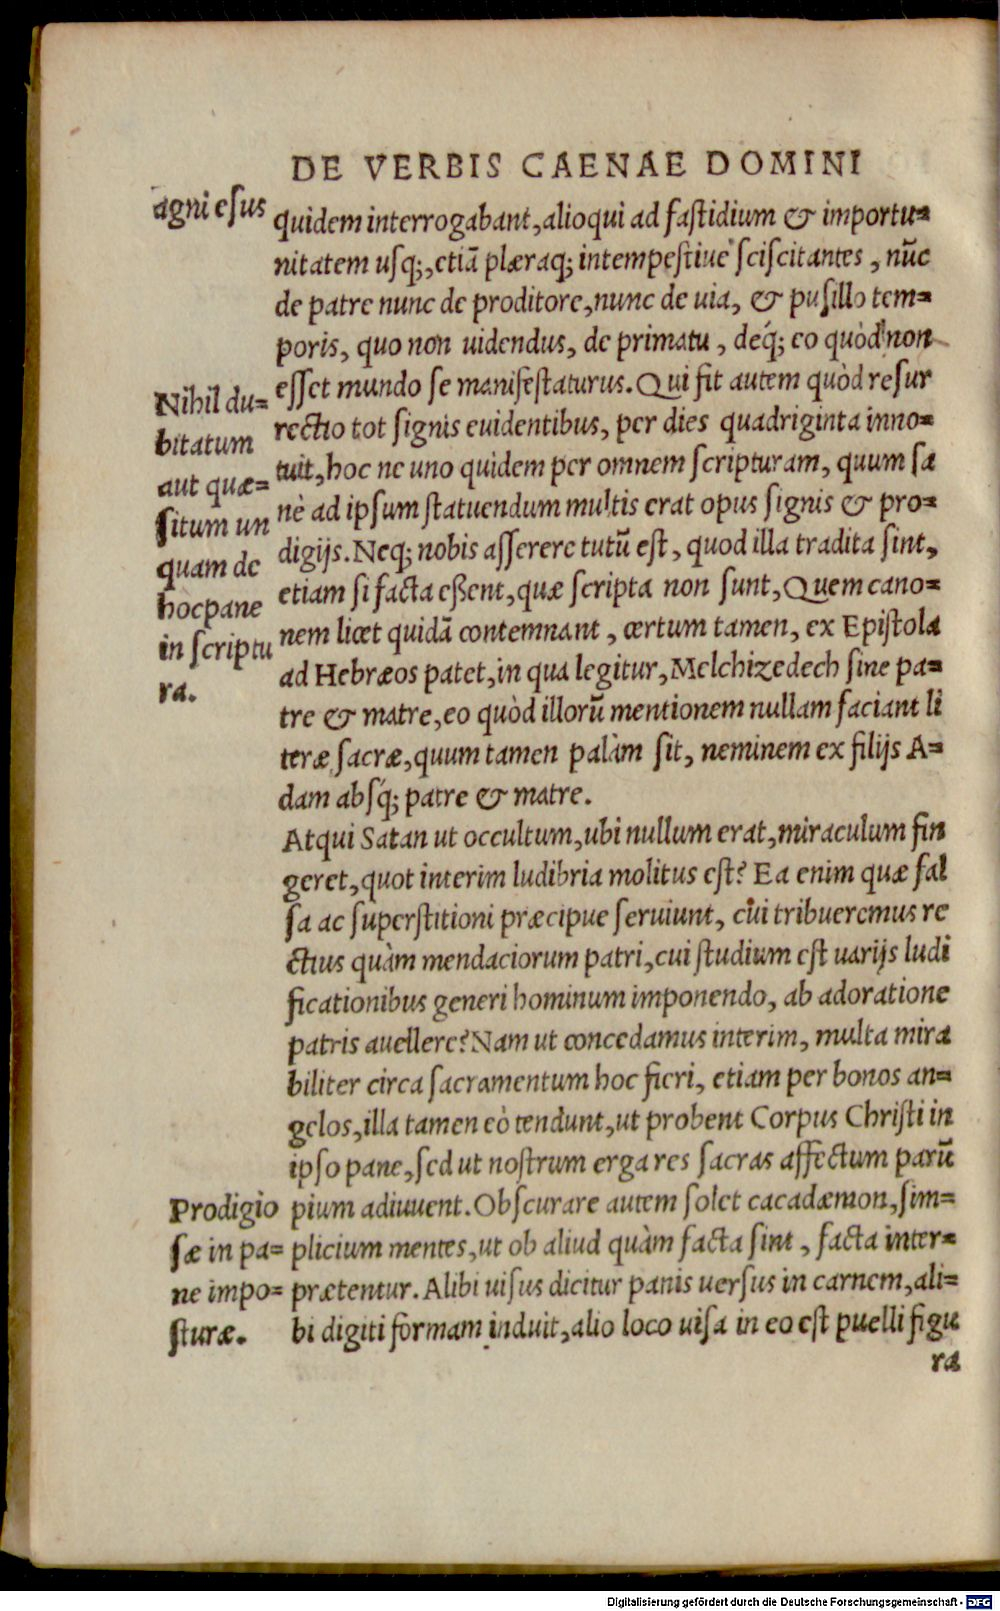 DE VERBIS CAENAE DOMINI
agni esus
quidem interrogabant, alioqui ad fastidium & importu=
nitatem usq;, etiã plæraq; intempestiue sciscitantes, nũc
de patre nunc de proditore, nunc de uia, & pusillo tem=
poris, quo non uidendus, de primatu, deq́; eo quòd non
esset mundo se manifestaturus. Qui fit autem quòd resur
rectio tot signis euidentibus, per dies quadriginta inno=
tuit, hoc ne uno quidem per omnem scripturam, quum sa
nè ad ipsum statuendum multis erat opus signis & pro=
digijs. Neq; nobis asserere tutũ est, quod illa tradita sint,
etiam si facta essent, quæ scripta non sunt, Quem cano=
nem licet quidã contemnant, certum tamen, ex Epistola
ad Hebræos patet, in qua legitur, Melchizedech sine pa=
tre & matre, eo quòd illorũ mentionem nullam faciant li
teræ sacræ, quum tamen palàm sit, neminem ex filijs A=
dam absq́; patre & matre.
Nihil du=
bitatum
aut quæ=
situm un
quam de
hoc pane
in scriptu
ra.
Atqui Satan ut occultum, ubi nullum erat, miraculum fin
geret, quot interim ludibria molitus est? Ea enim quæ fal
sa ac superstitioni præcipue seruiunt, cui tribueremus re
ctius quàm mendaciorum patri, cui studium est uarijs ludi
ficationibus generi hominum imponendo, ab adoratione
patris auellere? Nam ut concedamus interim, multa mira
biliter circa sacramentum hoc fieri, etiam per bonos an=
gelos, illa tamen eò tendunt, ut probent Corpus Christi in
ipso pane, sed ut nostrum erga res sacras affectum parũ
pium adiuuent. Obscurare autem solet cacadæmon, sim=
plicium mentes, ut ob aliud quàm facta sint, facta inter=
prætentur. Alibi uisus dicitur panis uersus in carnem, ali=
bi digiti formam induit, alio loco uisa in eo est puelli figu
Prodigio
sæ in pa=
ne impo=
sturæ.
ra
Digitalisierung gefördert durch die Deutsche Forschungsgemeinschaft - DFG